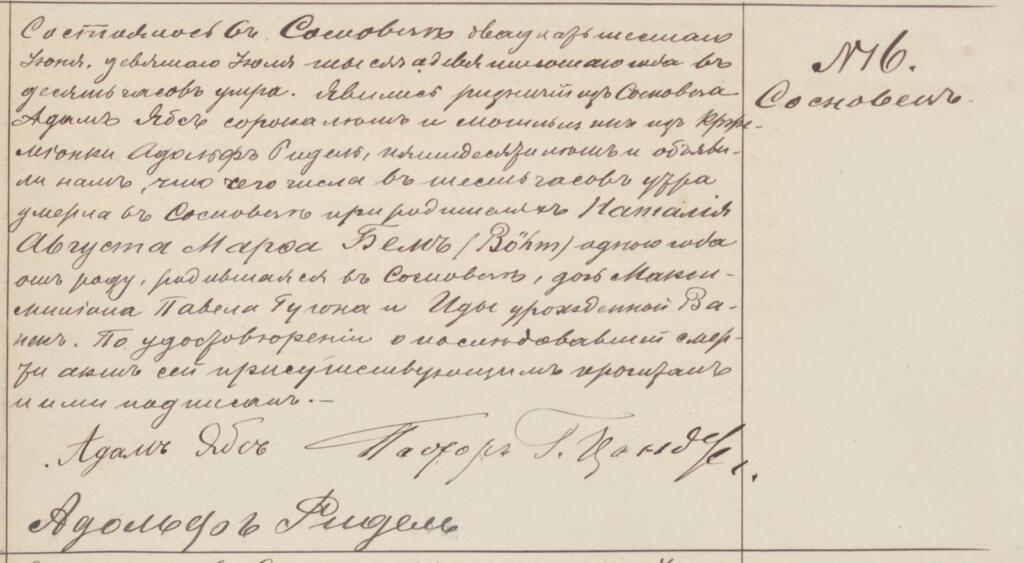 Состоялось въ Сосновцѣ двадцать шестаго
Іюня, девятаго Іюля тысяча девятисотаго года въ
десять часовъ утра. Явились ризничій изъ Сосновца
Адамъ Ябсъ сорока лѣтъ и могильщикъ изъ
Адольфъ Ридель, пятидесяти лѣтъ и объяви-
ли намъ, что сего числа въ шесть часовъ утра
умерла въ Сосновцѣ при родителяхъ Наталія
Августа Марѳа Бемъ (Böhm) одного года
отъ роду, родившаяся въ Сосновцѣ, дочь Макси-
миліана Павела Гугона и Иды урожденной Ва-
некъ. По удостовѣреніи о послѣдовавшей смер-
ти актъ сей присутствующимъ прочитанъ
и ими подписанъ.—
Адамъ Ябсъ Пасторъ Г. Цандеръ.
Адольфъ Ридель
№16.
Сосновецъ.